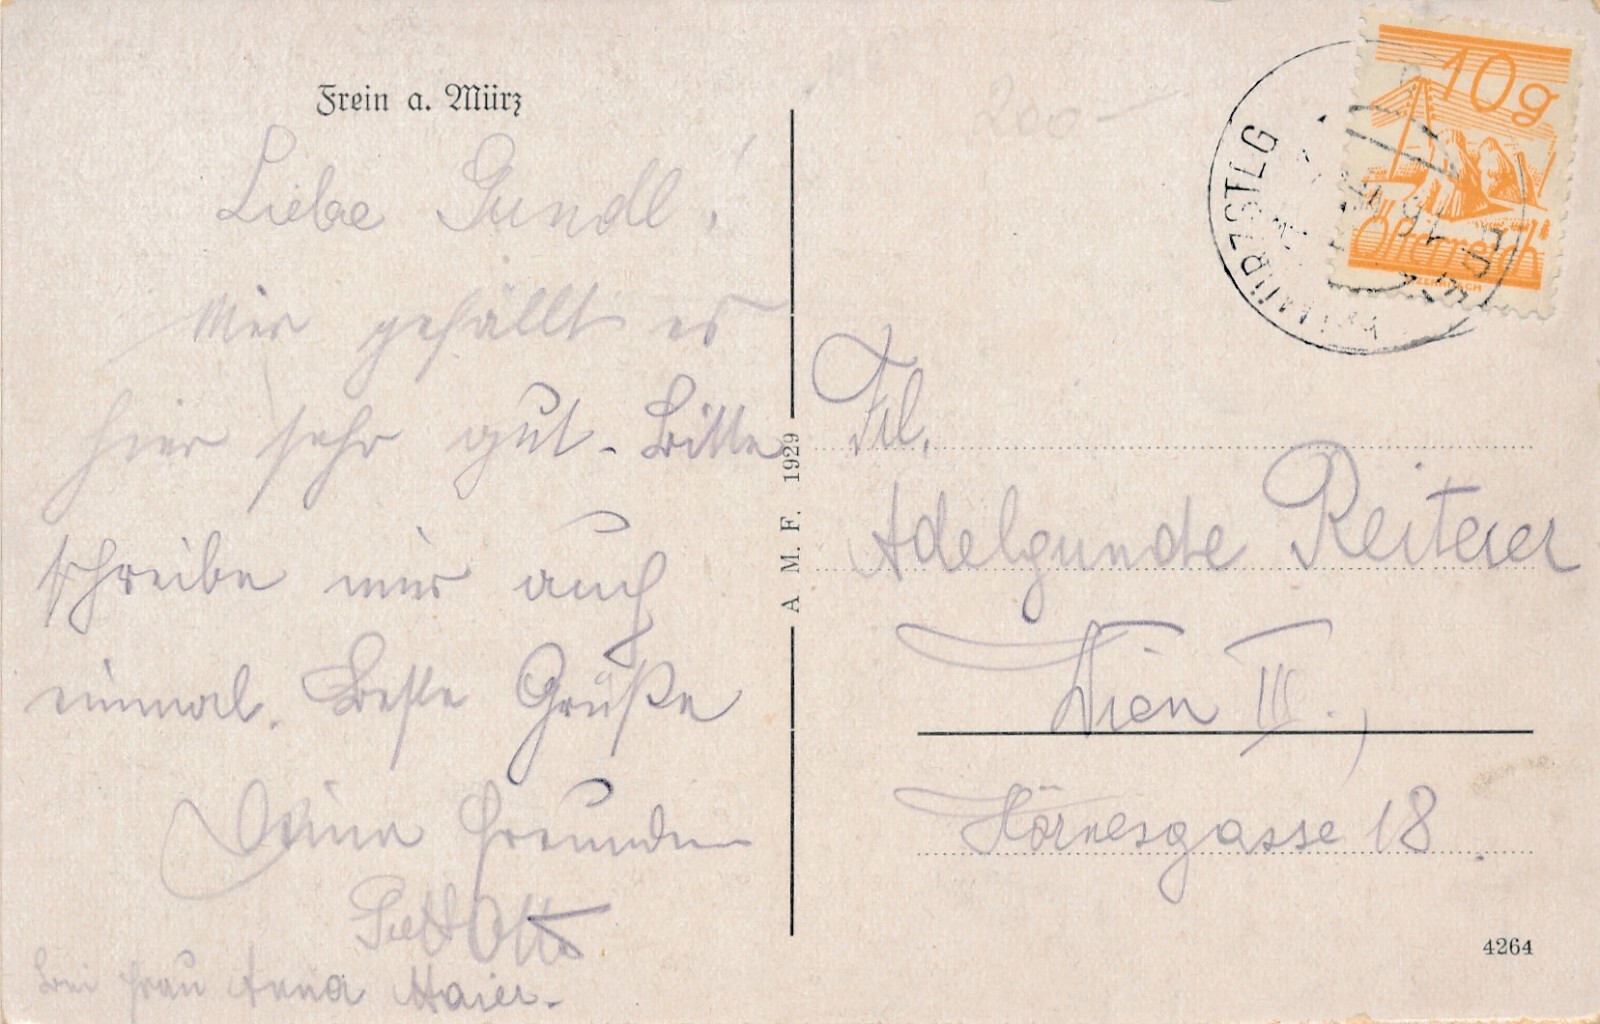 Frein a. Mürz
Liebe Gundl!
Mir gefällt es
hier sehr gut. Bitte
schreibe mir auch
einmal. Beste Grüße
Deine Freundin
Otto
bei Frau Anna Maier.
A M. F. 1929
200-
10g
Österreich
MÜRZSTLG
Frl.
Adelgunde Reiterer
Wien III.,
Hörnesgasse 18.
4264